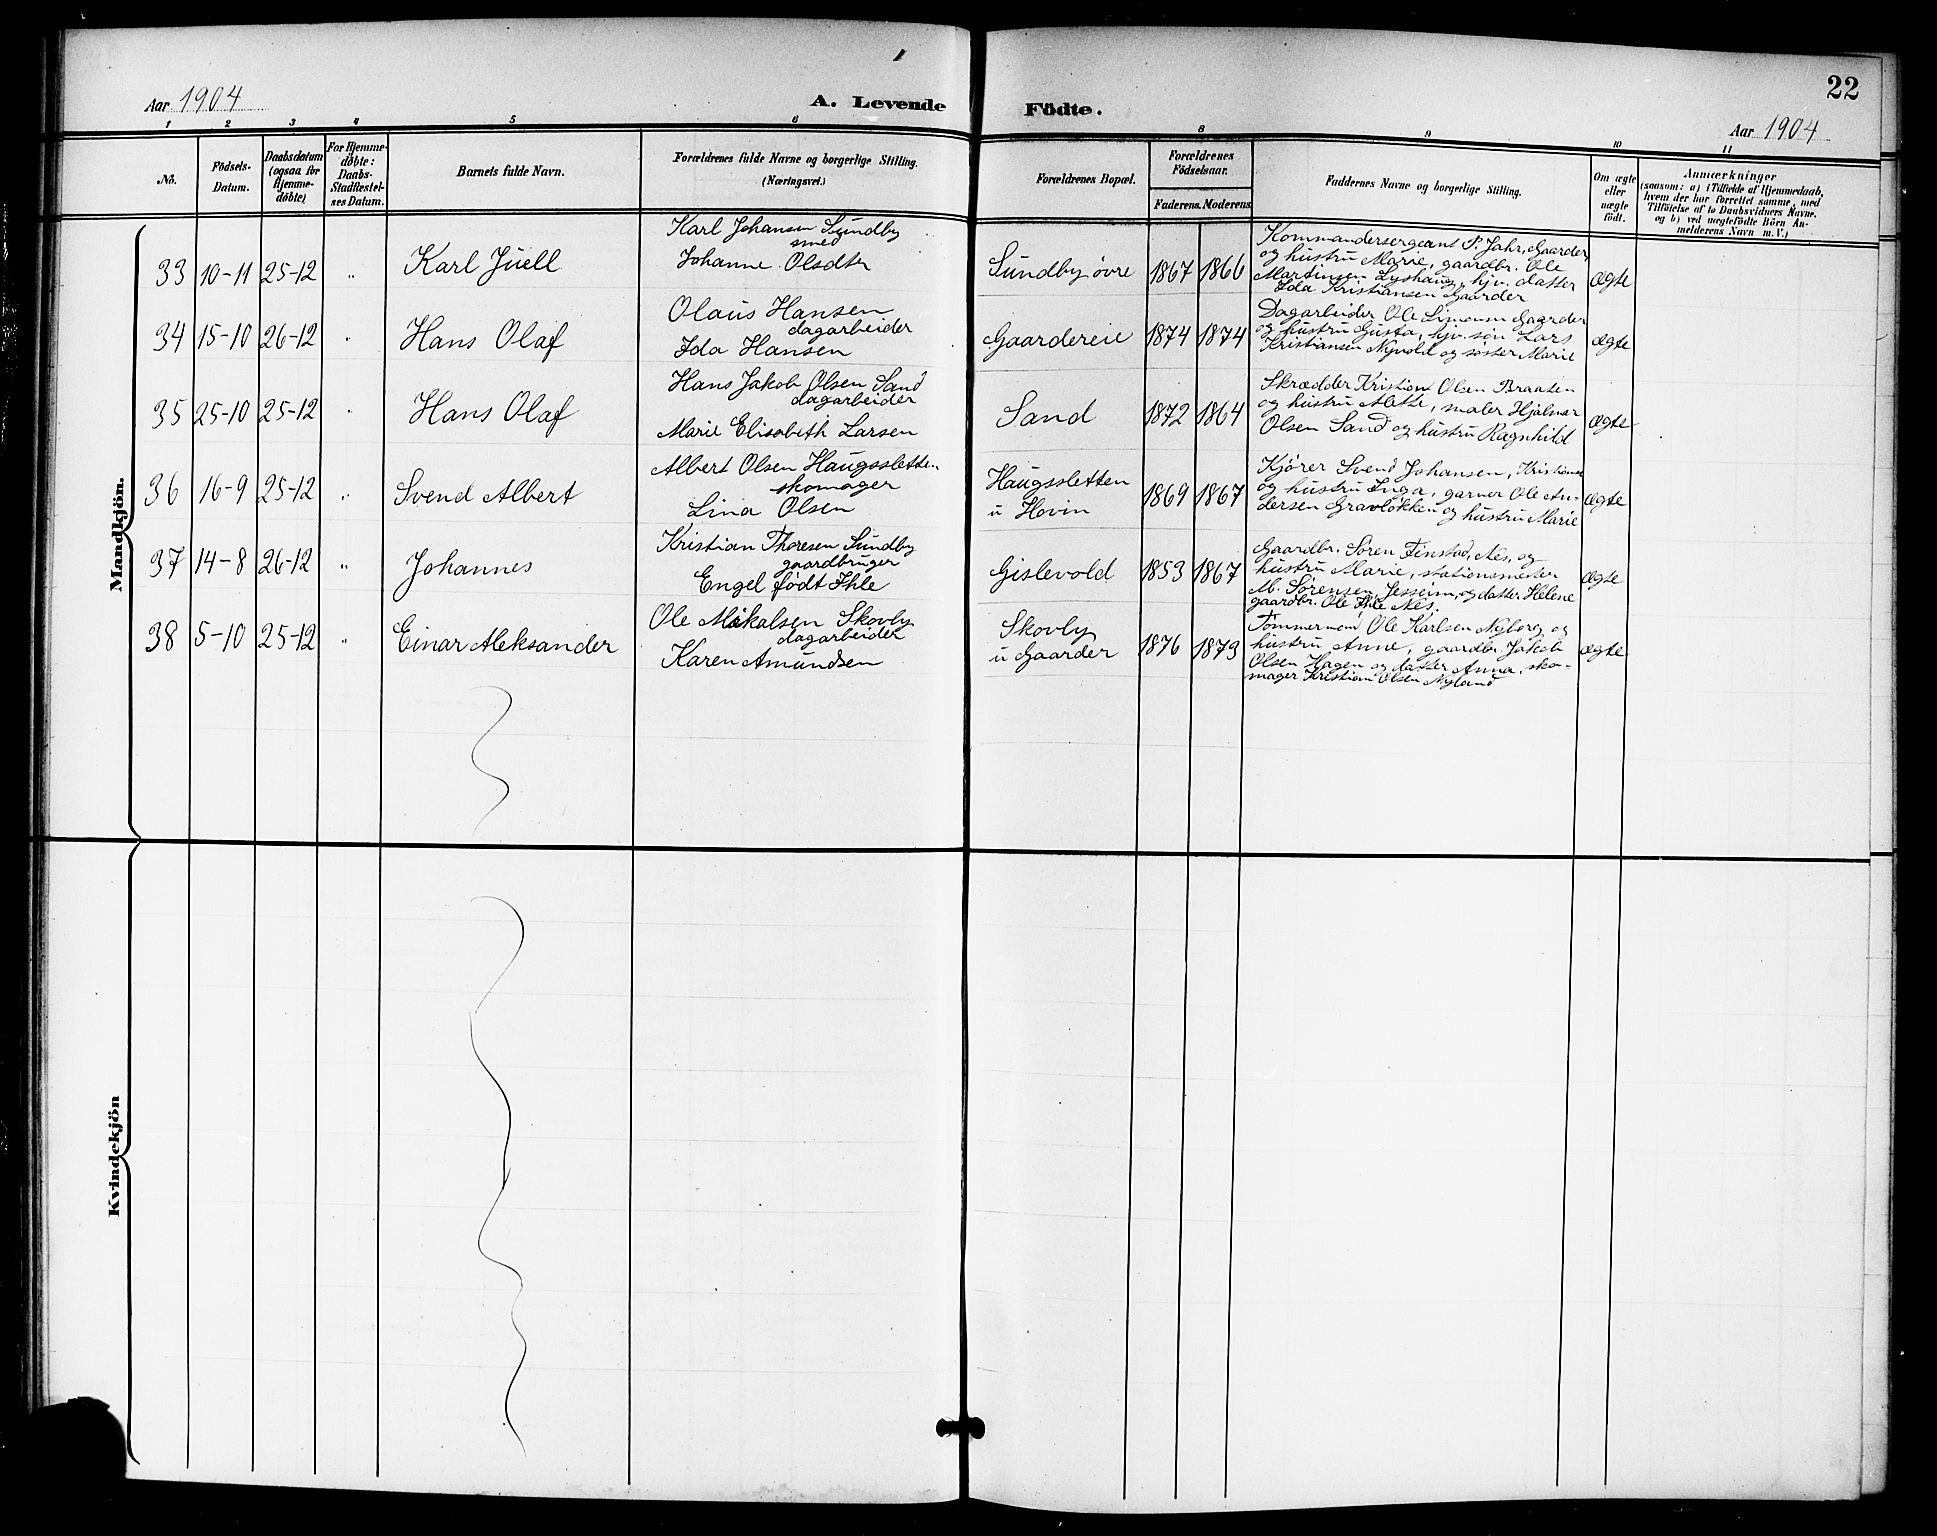 Aar 1904
A. Levende
Födte.
22
Aar 1904
1 2 3 4 5 6 8 9 10 11
No.
Födsels-
Datum.
Daabsdatum
(ogsaa for
Hjemme-
døbte)
For Hjemme-
døbte:
Daabs-
Stadfæstel-
ses Datum.
Barnets fulde Navn.
Forældrenes fulde Navne og borgerlige Stilling.
(Næringsvei.)
Forældrenes Bopæl.
Forældrenes
Födselsaar.
Faderens. Moderens.
Faddernes Navne og borgerlige Stilling.
Om ægte
eller
uægte
født.
Anmærkninger
(saasom: a) i Tilfælde af Hjemmedaab,
hvem der har forrettet samme, med
Tilføielse af to Daabsvidners Navne,
og b) ved uægtefødte Börn An-
melderens Navn m. V.)
Mandkjön.
33 10-11 25-12 „ Karl Juell
Karl Johansen Sundby
smed
Johanne Olsdtr
Sundby øvre 1867 1866
Kommandersergeant P. Jahr, Gaarder,
og hustru Marie, gaardbr. Ole
Martinsen Lyshaug, hjv. datter
Ida Kristiansen Gaarder
ægte
34 15-10 26-12 „ Hans Olaf
Olaus Hansen
dagarbeider
Ida Hansen
Gaardereie 1874 1874
Dagarbeider Ole Simensen Gaarder
og hustru Gusta, hjv. søn Lars
Kristiansen Nyvold og søster Marie
ægte
35 25-10 25-12 „ Hans Olaf
Hans Jakob Olsen Sand
dagarbeider
Marie Elisabeth Larsen
Sand 1872 1864
Skrædder Kristian Olsen Braaten
og hustru Alette, maler Hjalmar
Olsen Sand og hustru Ragnhild
ægte
36 16-9 25-12 „ Svend Albert
Albert Olsen Haugssletten
skomager
Lina Olsen
Haugssletten
u Hovin
1869 1867
Kjører Svend Johansen, Kristiania
og hustru Inga, garver Ole An-
dersen Gravløkken og hustru Marie
ægte
37 14-8 26-12 „ Johannes
Kristian Thoresen Sundby
gaardbruger
Engel født Ihle
Gislevold 1853 1867
Gaardbr. Søren Finstad, Nes, og
hustru Marie, stationsmester
M. Sørensen, Jesseim, og datter Helene
gaardbr. Ole Ihle Nes.
ægte
38 5-10 25-12 „ Einar Aleksander
Ole Mikalsen Skovly
dagarbeider
Karen Amundsen
Skovly
u Gaarder
1876 1873
Tømmermand Ole Karlsen Nyborg og
hustru Anne, gaardbr. Jakob
Olsen Hagen og datter Anna, sko-
mager Kristian Olsen Nyland
ægte
Kvindekjön